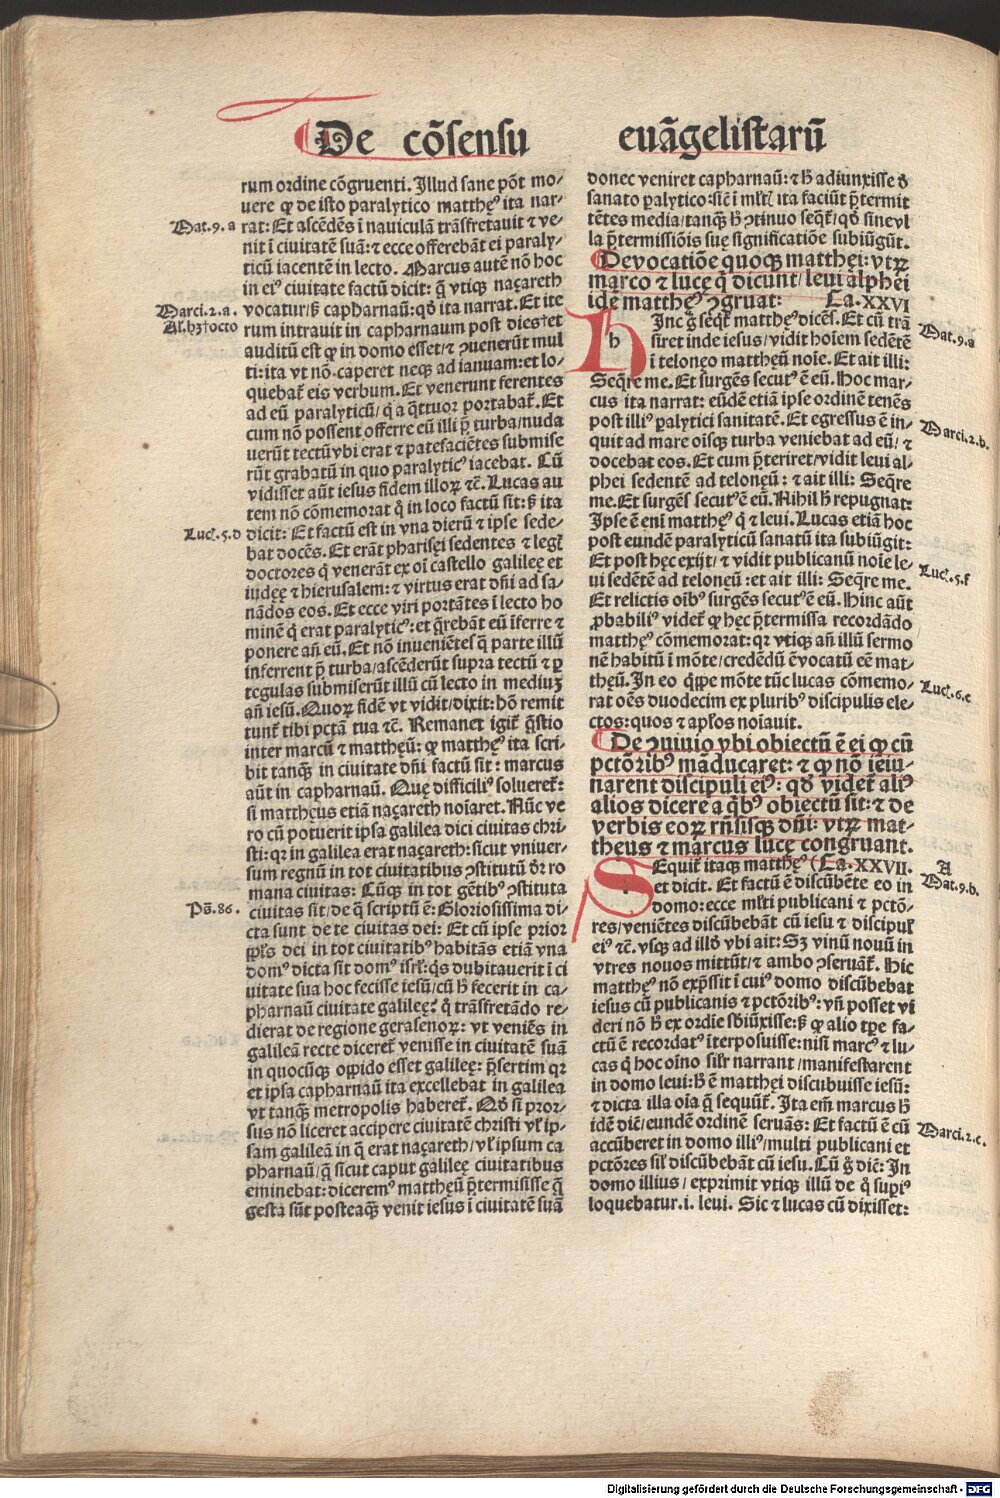 De cõsensu euãgelistarũ
rum ordine cõgruenti. Illud sane põt mo-
uere ꝙ de isto paralytico mattheꝰ ita nar-
Mat.9.a
rat: Et ascẽdẽs ĩ nauiculã trãsfretauit ⁊ ve-
nit ĩ ciuitatẽ suã: ⁊ ecce offerebãt ei paraly-
ticũ iacentẽ in lecto. Marcus autẽ nõ hoc
in eiꝰ ciuitate factũ dicit: q̃ vtiqꝫ naçareth
Marci.2.a.
Al.hʒ†octo
vocatur/sꝫ capharnaũ: qð ita narrat. Et ite
rum intrauit in capharnaum post dies†et
auditũ est ꝙ in domo esset/⁊ ꝯuenerũt mul
ti: ita vt nõ caperet neqꝫ ad ianuam: et lo-
quebat̃ eis verbum. Et venerunt ferentes
ad eũ paralyticũ/ q̇ a q̃ttuor portabat̃. Et
cum nõ possent offerre eũ illi p̃ turba/nuda
uerũt tectũ vbi erat ⁊ patefaciẽtes submise
rũt grabatũ in quo paralyticꝰ iacebat. Cũ
vidisset aũt iesus fidem illoꝝ ⁊c̃. Lucas au
tem nõ cõmemorat q̇ in loco factũ sit: sꝫ ita
Luc̃.5.d
dicit: Et factũ est in vna dierũ ⁊ ipse sede-
bat docẽs. Et erãt pharisęi sedentes ⁊ leg̃
doctores q̇ venerãt ex oĩ castello galileę et
iudęę ⁊ hierusalem: ⁊ virtus erat dñi ad sa-
nãdos eos. Et ecce viri portãtes ĩ lecto ho
minẽ q̇ erat paralyticꝰ: et q̃rebãt eũ ĩferre ⁊
ponere añ eũ. Et nõ inueniẽtes q̃ parte illũ
inferrent p̃ turba/ascẽderũt supra tectũ ⁊ ꝑ
tegulas submiserũt illũ cũ lecto in mediuʒ
añ iesũ. Quoꝝ fidẽ vt vidit/dixit: hõ remit
tunt̃ tibi pctã tua ⁊c̃. Remanet igit̃ q̃stio
inter marcũ ⁊ mattheũ: ꝙ mattheꝰ ita scri-
bit tanqꝫ in ciuitate dñi factũ sit: marcus
aũt in capharnaũ. Quę difficiliꝰ solueret̃:
si mattheus etiã naçareth noĩaret. Nũc ve
ro cũ potuerit ipsa galilea dici ciuitas chri-
sti: qꝛ in galilea erat naçareth: sicut vniuer-
sum regnũ in tot ciuitatibus ꝯstitutũ dr̃ ro
mana ciuitas: Cũqꝫ in tot gẽtibꝰ ꝯstituta
Pã.86.
ciuitas sit/de q̃ scriptũ ẽ: Gloriosissima di-
cta sunt de te ciuitas dei: Et cũ ipse prior
ppl̃s dei in tot ciuitatibꝰ habitãs etiã vna
domꝰ dicta sit domꝰ isrl̃: q̇s dubitauerit ĩ ci
uitate sua hoc fecisse iesũ/cũ h̃ fecerit in ca-
pharnaũ ciuitate galileę: q̇ trãsfretãdo re-
dierat de regione gerasenoꝝ: vt veniẽs in
galileã recte diceret̃ venisse in ciuitatẽ suã
in quocũqꝫ oppido esset galileę: p̃sertim qꝛ
et ipsa capharnaũ ita excellebat in galilea
vt tanqꝫ metropolis haberet̃. Qð si pror-
sus nõ liceret accipere ciuitatẽ christi vl̃ ip-
sam galileã in q̃ erat naçareth/vl̃ ipsum ca
pharnaũ/q̃ sicut caput galileę ciuitatibus
eminebat: diceremꝰ mattheũ p̃termisisse q̃
gesta sũt posteaqꝫ venit iesus ĩ ciuitatẽ suã
donec veniret capharnaũ: ⁊ h̃ adiunxisse d̃
sanato ꝑalytico: sic̃ ĩ ml̃t̃ ita faciũt p̃termit
tẽtes media/tanqꝫ h̃ ꝯtinuo seqt̃/qð sine vl
la p̃termissiõis suę significatiõe subiũgũt.
De vocatiõe quoqꝫ matthei: vtꝝ
marco ⁊ lucę q̇ dicunt/leui alphęi
idẽ mattheꝰ ꝯgruat: Ca.XXVI
Mat.9.a
HInc q̃ seqt̃ mattheꝰ dicẽs. Et cũ trã
siret inde iesus/vidit hoĩem sedẽtẽ
ĩ teloneo mattheũ noĩe. Et ait illi:
Seq̃re me. Et surgẽs secutꝰ ẽ eũ. Hoc mar-
cus ita narrat: eũdẽ etiã ipse ordinẽ tenẽs
Marci.2.b.
post illiꝰ ꝑalytici sanitatẽ. Et egressus ẽ in-
quit ad mare oĩsqꝫ turba veniebat ad eũ/ ⁊
docebat eos. Et cum p̃teriret/vidit leui al-
phei sedentẽ ad teloneũ: ⁊ ait illi: Seq̃re
me. Et surgẽs secutꝰẽ eũ. Nihil h̃ repugnat:
Ipse ẽ eni mattheꝰ q̇ ⁊ leui. Lucas etiã hoc
post eundẽ paralyticũ sanatũ ita subiũgit:
Luc̃.5.f
Et post hęc exijt/ ⁊ vidit publicanũ noĩe le-
ui sedẽtẽ ad teloneũ: et ait illi: Seq̃re me.
Et relictis oĩbꝰ surgẽs secutꝰẽ eũ. Hinc aũt
ꝓbabiliꝰ videt̃ ꝙ hęc p̃termissa recordãdo
mattheꝰ cõmemorat: qꝛ vtiqꝫ añ illũ sermo
nẽ habitũ ĩ mõte/credẽdũ ẽvocatũ eẽ mat-
Luc̃.6.c
theũ. In eo q̇ppe mõte tũc lucas cõmemo-
rat oẽs duodecim ex pluribꝰ discipulis ele-
ctos: quos ⁊ apl̃os noĩauit.
De ꝯuiuio vbi obiectũ ẽ ei ꝙ cũ
pctõribꝰ mãducaret: ⁊ ꝙ nõ ieiu-
narent discipuli eiꝰ: qð videt̃ aliꝰ
alios dicere a q̇bꝰ obiectũ sit: ⁊ de
verbis eoꝝ rñsisqꝫ dñi: vtꝝ mat-
theus ⁊ marcus lucę congruant.
A
Mat.9.b.
SEquit̃ itaqꝫ mattheꝰ (Ca.XXVII.
et dicit. Et factũ ẽ discũbẽte eo in
domo: ecce ml̃ti publicani ⁊ pctõ-
res/veniẽtes discũbebãt cũ iesu ⁊ discipul̃
eiꝰ ⁊c̃. vsqꝫ ad illð vbi ait: Sʒ vinũ nouũ in
vtres nouos mittũt/⁊ ambo ꝯseruãt̃. Hic
mattheꝰ nõ exp̃ssit ĩ cuiꝰ domo discũbebat
iesus cũ publicanis ⁊ pctõribꝰ: vñ posset vi
deri nõ h̃ ex ordĩe sb̃iũxisse: sꝫ ꝙ alio tp̃e fa-
ctũ ẽ recordatꝰ ĩterposuisse: nisi marcꝰ ⁊ lu-
cas q̇ hoc oĩno sil̃r narrant/manifestarent
in domo leui: h̃ ẽ matthei discubuisse iesũ:
⁊ dicta illa oĩa q̃ sequũt̃. Ita em̃ marcus h̃
Marci.2.c.
idẽ dic̃/eundẽ ordinẽ seruãs: Et factũ ẽ cũ
accũberet in domo illiꝰ/multi publicani et
pctõres sil̃ discũbebãt cũ iesu. Cũ g̃ dic̃: In
domo illius/ exprimit vtiqꝫ illũ de q̃ supiꝰ
loquebatur.i. leui. Sic ⁊ lucas cũ dixisset:
Digitalisierung gefördert durch die Deutsche Forschungsgemeinschaft - DFG